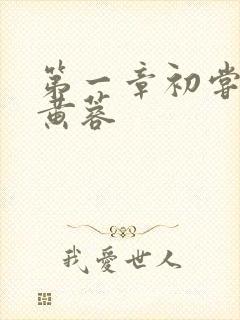 第一章初尝
黄蓉
我爱世人